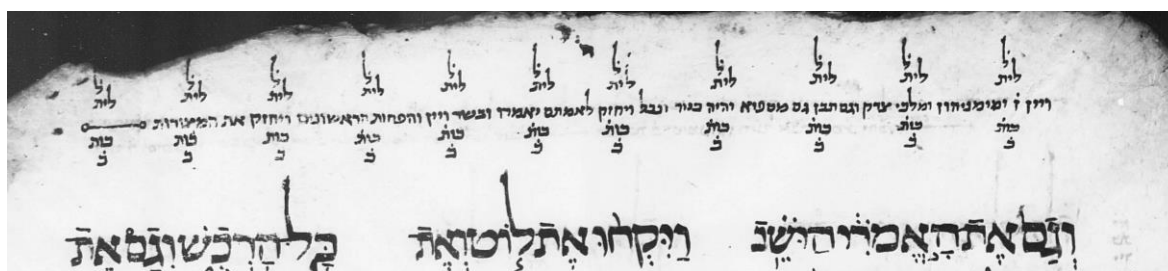 ל ל ל ל ל ל ל ל ל ל ל
לית לית לית לית לית לית לית לית לית לית לית
ויין ז ומימניהון ומלכי צדק וגם תבן גם מספוא והיה ונבל ויחזק יאמרו ובשר ויין והפחות הראשונים ויחזק את
כות כות כות כות כות כות כות כות כות כות כות
ב ב ב ב ב ב ב ב ב ב ב
וְגַם אֶת הָאֱמֹרִי הַיֹּשֵׁב
וַיִּקְחוּ אֶת לוֹט וְאֶת
כָּל הָרְכֻשׁ וְגַם אֶת